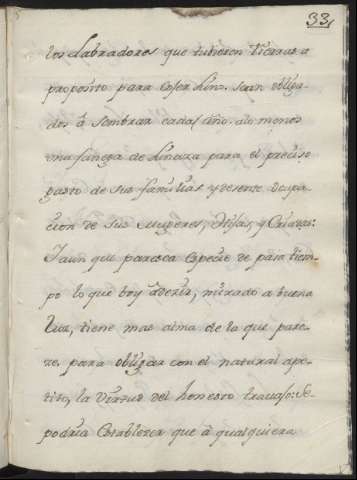 33,
los Labradores que tubieren tierras a
proposito para Cojer Lino. sean obliga-
dos â sembrar cada año. alo menos
una fanega de Linaza para el preciso
gasto de sus familias y desente ocupa-
cion de sus Mugeres, Hijas, y Criadas:
Y aun que paresca Especie de pasa tiem-
po lo que boy â decir, mirado a buena
luz, tiene mas alma de lo que pare-
ze, para obligar con el natural ape-
tito, la Virtud del honesto travajo: Se
podria Establezer que â qualquiera